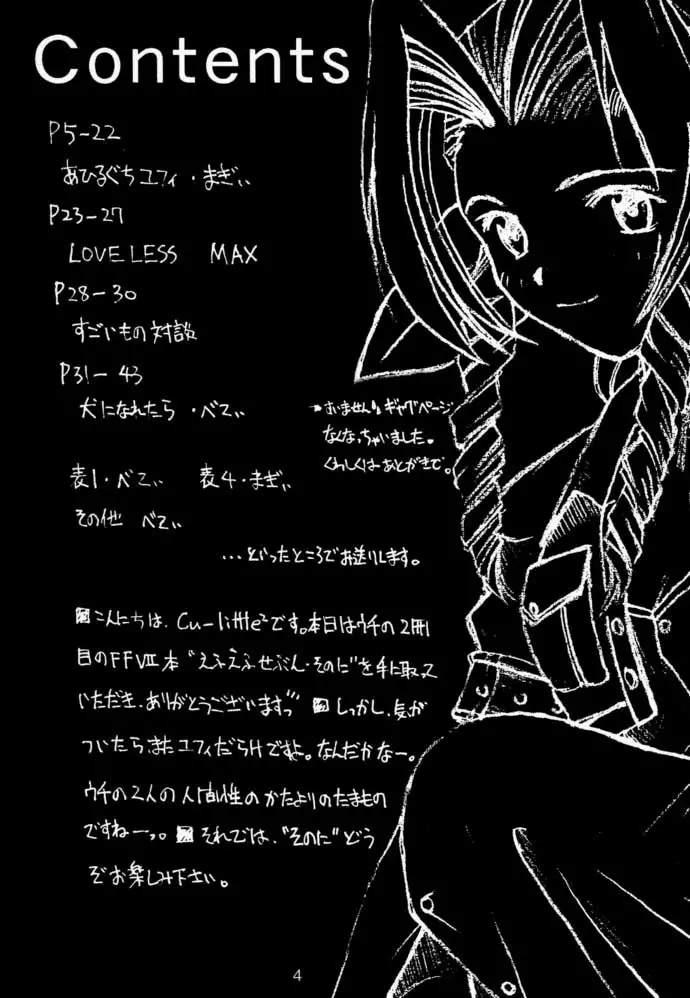 Contents
P5-22
あひるぐちユフィ・まぎぃ
P23-27
LOVELESS MAX
P28-30
すごいもの対談
P31-43
犬になれたら・べてぃ
すいません ギャグページ
なくなっちゃいました。
くわしくはあとがきで。
表1・べてぃ 表4・まぎぃ
その他 べてぃ
…といったところでお送りします。
こんにちは、Cu-little²です。本日はウチの2冊
目のFFⅦ本“えふえふせぶん・そのに”を手に取って
いただき、ありがとうございますっ しっかし、気が
ついたらまたユフィだらけですよ。なんだかなー。
ウチの2人の人間性のかたよりのたまもの
ですねーっ。 それでは、“そのに”どう
ぞお楽しみ下さい。
4